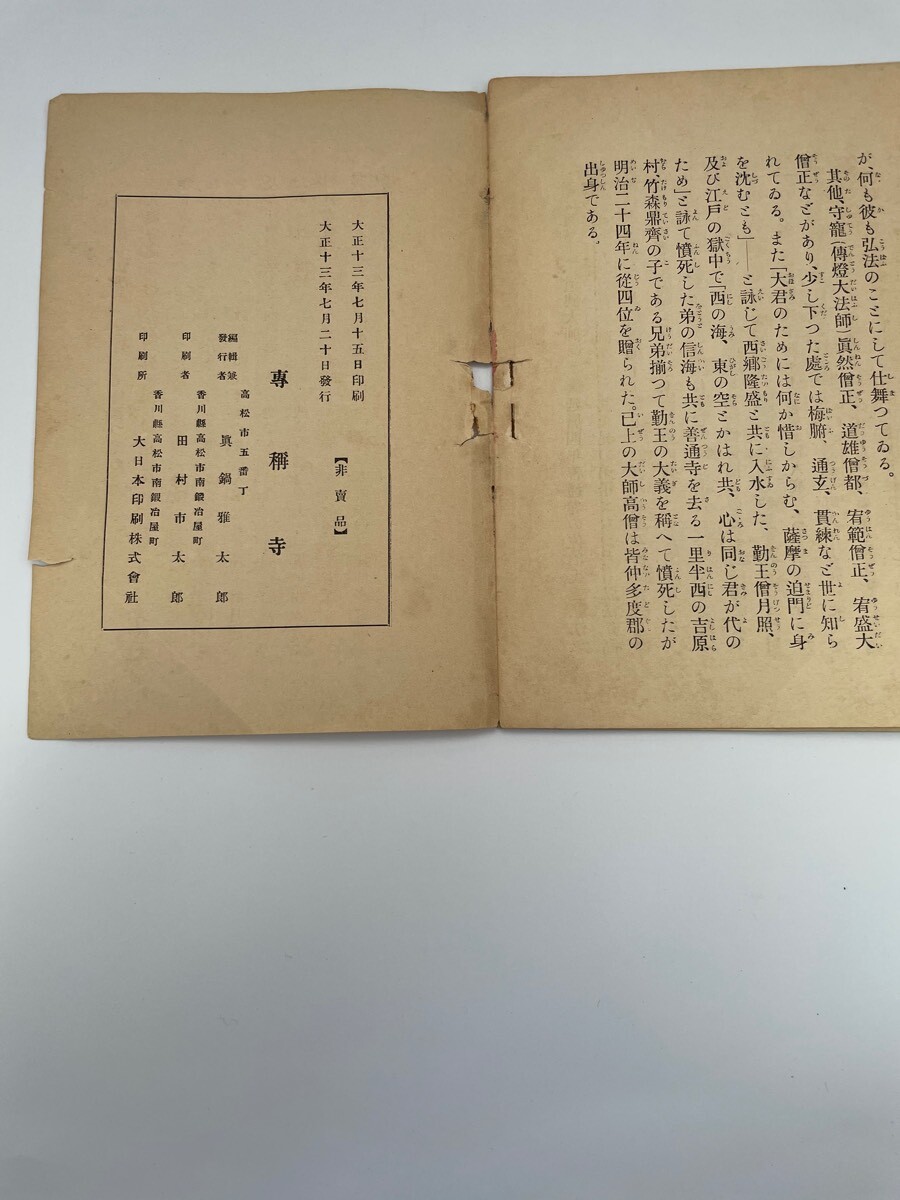 が、何も彼も弘法のことにして仕舞つてゐる。
其他、守寵(傳燈大法師)眞然僧正、道雄僧都、宥範僧正、宥盛大
僧正などがあり、少し下つた處では梅腑、通玄、貫練など世に知ら
れてゐる。また「大君のためには何か惜しからむ、薩摩の迫門に身
を沈むとも」――と詠じて西郷隆盛と共に入水した、勤王僧月照、
及び江戸の獄中で「西の海、東の空とかはれ共、心は同じ君が代の
ため」と詠て憤死した弟の信海も共に善通寺を去る一里半西の吉原
村、竹森鼎齊の子である兄弟揃つて勤王の大義を稱へて憤死したが
明治二十四年に從四位を贈られた。已上の大師高僧は皆仲多度郡の
出身である。
大正十三年七月十五日印刷
大正十三年七月二十日發行
【非賣品】
專稱寺
高松市五番丁
編輯兼發行者 眞鍋雅太郎
香川縣高松市南鍛冶屋町
印刷者 田村市太郎
香川縣高松市南鍛冶屋町
印刷所 大日本印刷株式會社